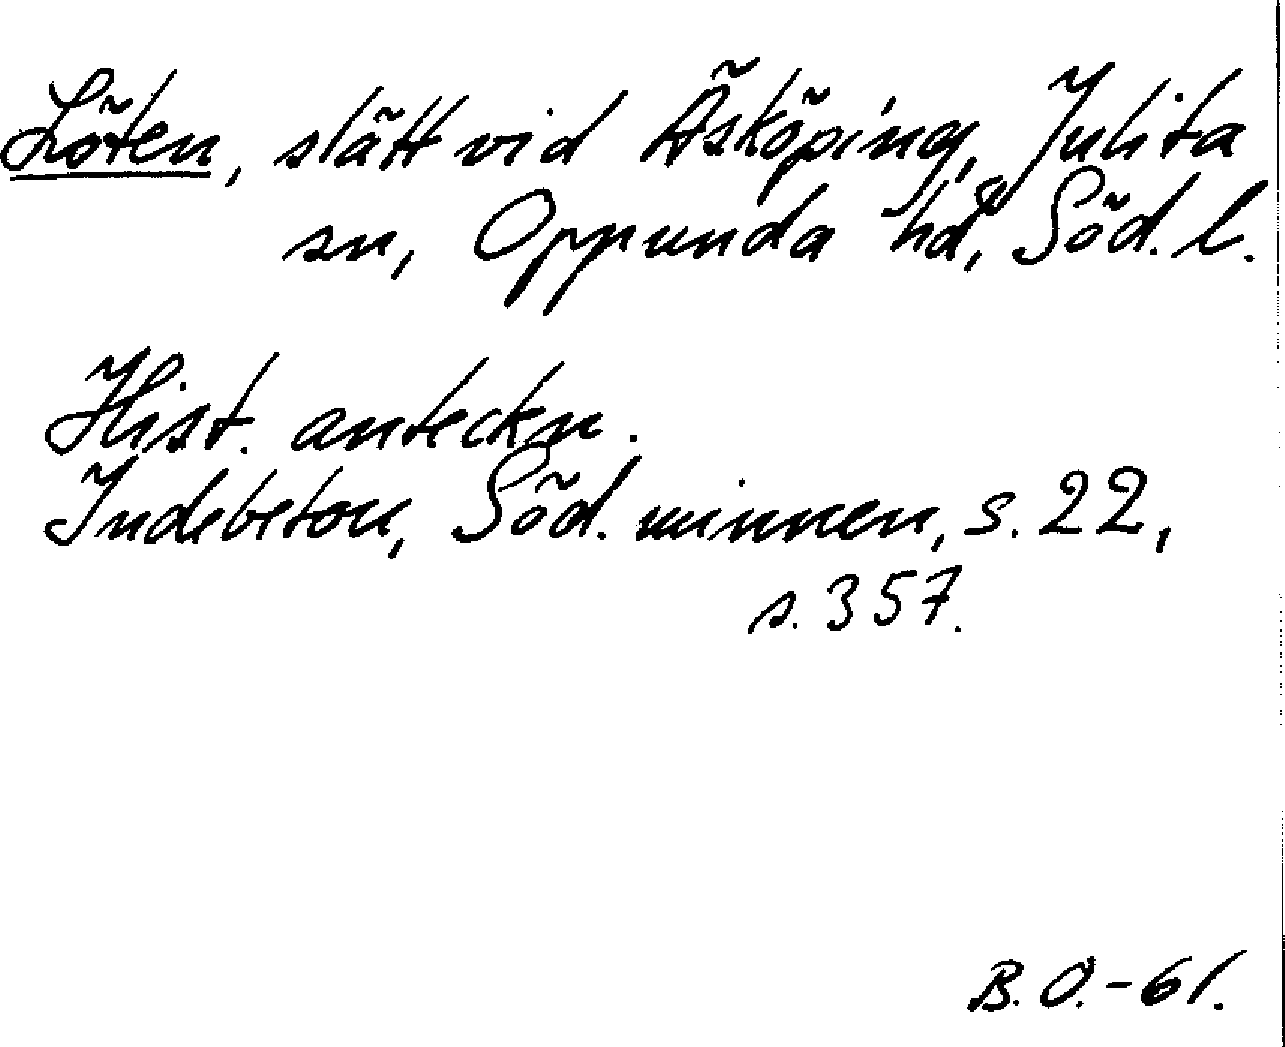 Löten, slätt vid Äsköping, Julita
sn, Oppunda hd, Söd. l.
Hist. anteckn.
Indebetou, Söd. minnen, s. 22,
s. 357.
B. O. - 61.